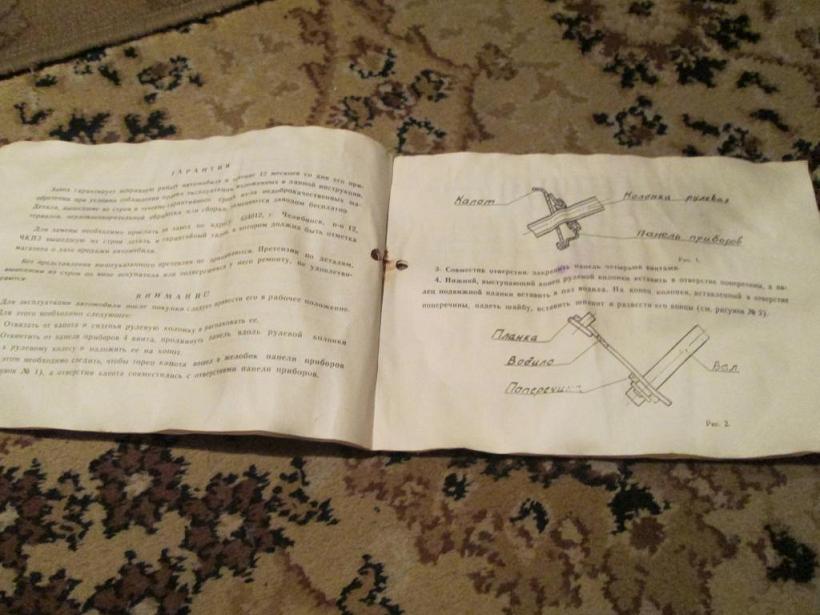 ГАРАНТИЯ
Завод гарантирует исправную работу автомобиля в течение 12 месяцев со дня его при-
обретения при условии соблюдения правил эксплуатации, изложенных в данной инструкции.
Детали, вышедшие из строя в течение гарантийного срока из-за недоброкачественных ма-
териалов, обработки или сборки, заменяются заводом бесплатно
Для замены необходимо прислать на завод по адресу: 454012, г. Челябинск, п-о 12,
ЧКПЗ вышедшую из строя деталь и гарантийный талон, в котором должна быть отметка
магазина о дате продажи автомобиля.
Без представления вышеуказанного претензии не принимаются. Претензии по деталям,
вышедшим из строя по вине покупателя или подвергшимся у него ремонту, не удовлетво-
ряются
ВНИМАНИЕ!
Для эксплуатации автомобиля после покупки следует привести его в рабочее положение.
Для этого необходимо следующее:
Отвязать от капота и сиденья рулевую колонку и распаковать ее.
Отвинтить от панели приборов 4 винта, продвинуть панель вдоль рулевой колонки
к рулевому колесу и наложить ее на капот.
этом необходимо следить, чтобы торец капота вошел в желобок панели приборов
№ 1), а отверстия капота совместились с отверстиями панели приборов.
Капот
Колонка рулевая
Панель приборов
Рис. 1.
3. Совместив отверстия, закрепить панель четырьмя винтами.
4. Нижний, выступающий конец рулевой колонки вставить в отверстие поперечины, а па-
лец подвижной планки вставить в паз водила. На конец колонки, вставленный в отверстие
поперечины, надеть шайбу, вставить шплинт и развести его концы (см. рисунок № 2).
Планка
Водило
Поперечина
Вал
Рис. 2.